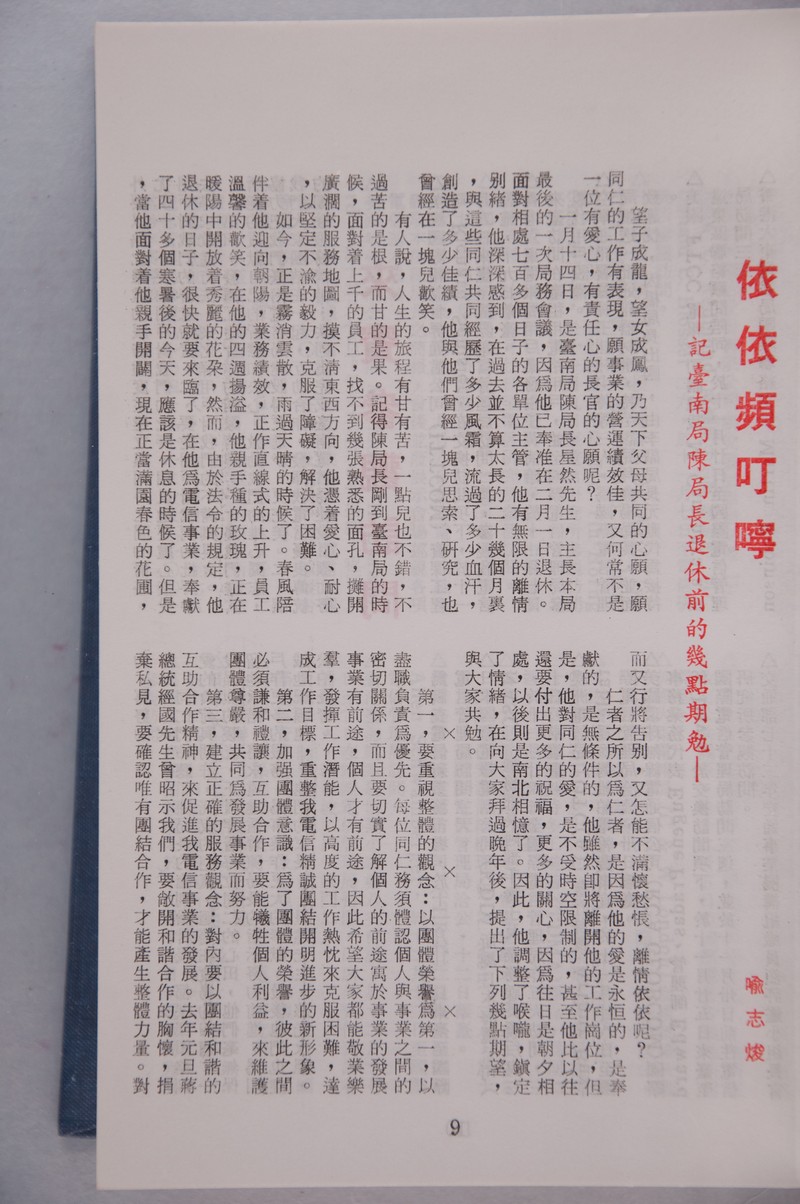 依依頻叮嚀
—記臺南局陳局長退休前的幾點期勉—
喩志焌
望子成龍，望女成鳳，乃天下父母共同的心願，願
同仁的工作有表現，願事業的營運績效佳，又何常不是
一位有愛心，有責任心的長官的心願呢？
一月十四日，是臺南局陳局長昰然先生，主長本局
最後的一次局務會議，因爲他已奉准在二月一日退休。
面對相處七百多個日子的各單位主管，他有無限的離情
別緒，他深深感到，在過去並不算太長的二十幾個月裏
，與這些同仁共同經歷了多少風霜，流過了多少血汗，
創造了多少佳績，他與他們曾經一塊兒思索、硏究，也
曾經在一塊兒歡笑。
有人說，人生的旅程有甘有苦，一點兒也不錯，不
過苦的是根，而甘的是果。記得陳局長剛到臺南局的時
候，面對着上千的員工，找不到幾張熟悉的面孔，攤開
廣濶的服務地圖，摸不淸東西方向，他憑着愛心、耐心
，以堅定不渝的毅力，克服了障礙，解決了困難。
如今，正是霧消雲散，雨過天晴的時候了。春風陪
伴着他迎向朝陽，業務績效，正作直線式的上升，員工
溫馨的歡笑，在他的四週揚溢，他親手種的玫瑰，正在
暖陽中開放着秀麗的花朶，然而，由於法令的規定，他
退休的日子，很快就要來臨了，在他爲電信事業，奉獻
了四十多個寒暑後的今天，應該是休息的時候了。但是
，當他面對着他親手開闢，現在正當滿園春色的花圃，
而又行將告別，又怎能不滿懷愁悵，離情依依呢？
仁者之所以爲仁者，是因爲他的愛是永恒的，是奉
獻的，是無條件的，他雖然卽將離開他的工作崗位，但
是，他對同仁的愛，是不受時空限制的，甚至他比以往
還要付出更多的祝福，更多的關心，因爲往日是朝夕相
處，以後則是南北相憶了。因此，他調整了喉嚨，鎭定
了情緒，在向大家拜過晚年後，提出了下列幾點期望，
與大家共勉。
× × ×
第一，要重視整體的觀念：以團體榮譽爲第一，以
盡職負責爲優先。每位同仁務須體認個人與事業之間的
密切關係，而且要切實了解個人的前途寓於事業的發展
事業有前途，個人才有前途，因此希望大家都能敬業樂
羣，發揮工作潛能，以高度的工作熱忱來克服困難，達
成工作目標，重整我電信精誠團結開明進步的新形象。
第二，加强團體意識：爲了團體的榮譽，彼此之間
必須謙和禮讓，互助合作，要能犧牲個人利益，來維護
團體尊嚴，共同爲發展事業而努力。
第三，建立正確的服務觀念：對內要以團結和諧的
互助合作精神，來促進我電信事業的發展。去年元旦蔣
總統經國先生曾昭示我們，要敞開和諧合作的胸懷，捐
棄私見，要確認唯有團結合作，才能產生整體力量。對
9